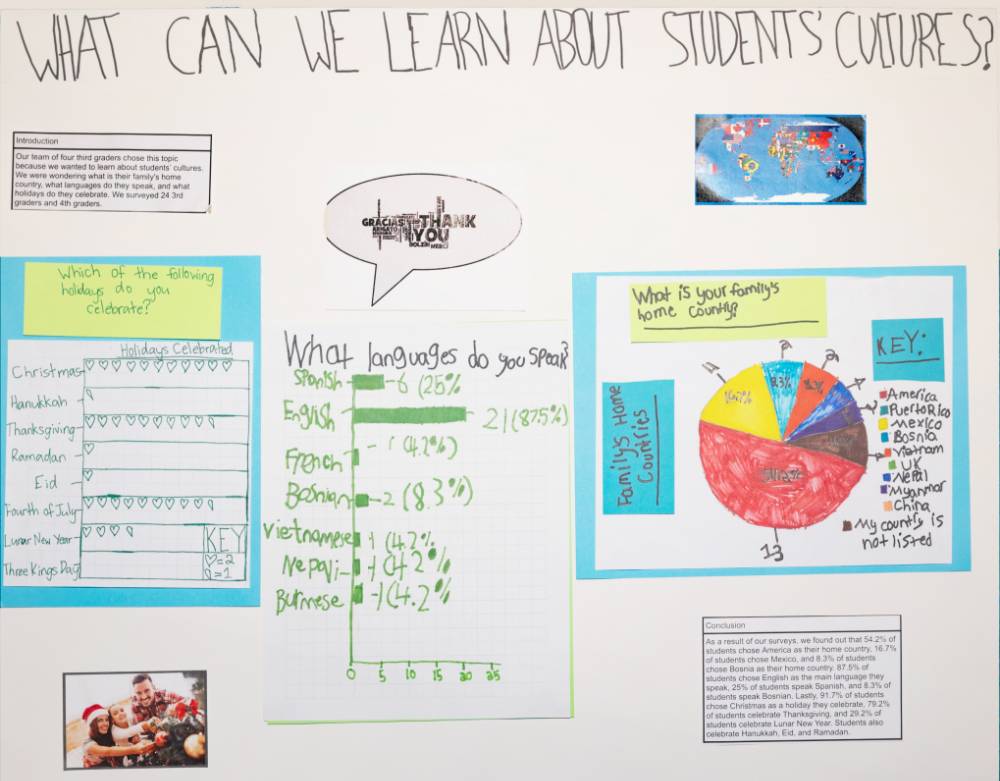 WHAT CAN WE LEARN ABOUT STUDENTS' CULTURES?
Introduction
Our team of four third graders chose this topic
because we wanted to learn about students' cultures.
We were wondering what is their family's home
country, what languages do they speak, and what
holidays do they celebrate. We surveyed 24 3rd
graders and 4th graders.
GRACIAS
THANK
YOU
MERCI
Which of the following
holidays do you
celebrate?
Holidays Celebrated
Christmas
Hanukkah
Thanksgiving
Ramadan
Eid
Fourth of July
Lunar New Year
Three Kings Day
KEY
=2
=1
What languages do you speak?
Spanish - 6 (25%
English 21 (87.5%)
French - 1 (4.2%)
Bosnian - 2 (8.3%)
Vietnamese 1 (4.2%
Nepali - 1 (4.2%
Burmese - 1 (4.2%
0 5 10 15 20 25
What is your family's
home country?
Family's Home
Countries
KEY:
America
Puerto Rico
Mexico
Bosnia
Vietnam
UK
Nepal
Myanmar
China
My country is
not listed
4
2
2
16.7%
8.3%
54.2%
13
Conclusion
As a result of our surveys, we found out that 54.2% of
students chose America as their home country, 16.7%
of students chose Mexico, and 8.3% of students
chose Bosnia as their home country. 87.5% of
students chose English as the main language they
speak, 25% of students speak Spanish, and 8.3% of
students speak Bosnian. Lastly, 91.7% of students
chose Christmas as a holiday they celebrate, 79.2%
of students celebrate Thanksgiving, and 29.2% of
students celebrate Lunar New Year. Students also
celebrate Hanukkah, Eid, and Ramadan.